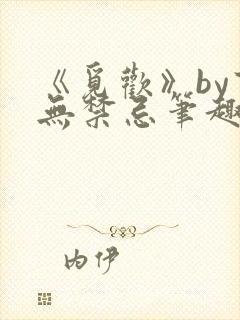 《覓歡》by
無禁忌筆趣
内伊